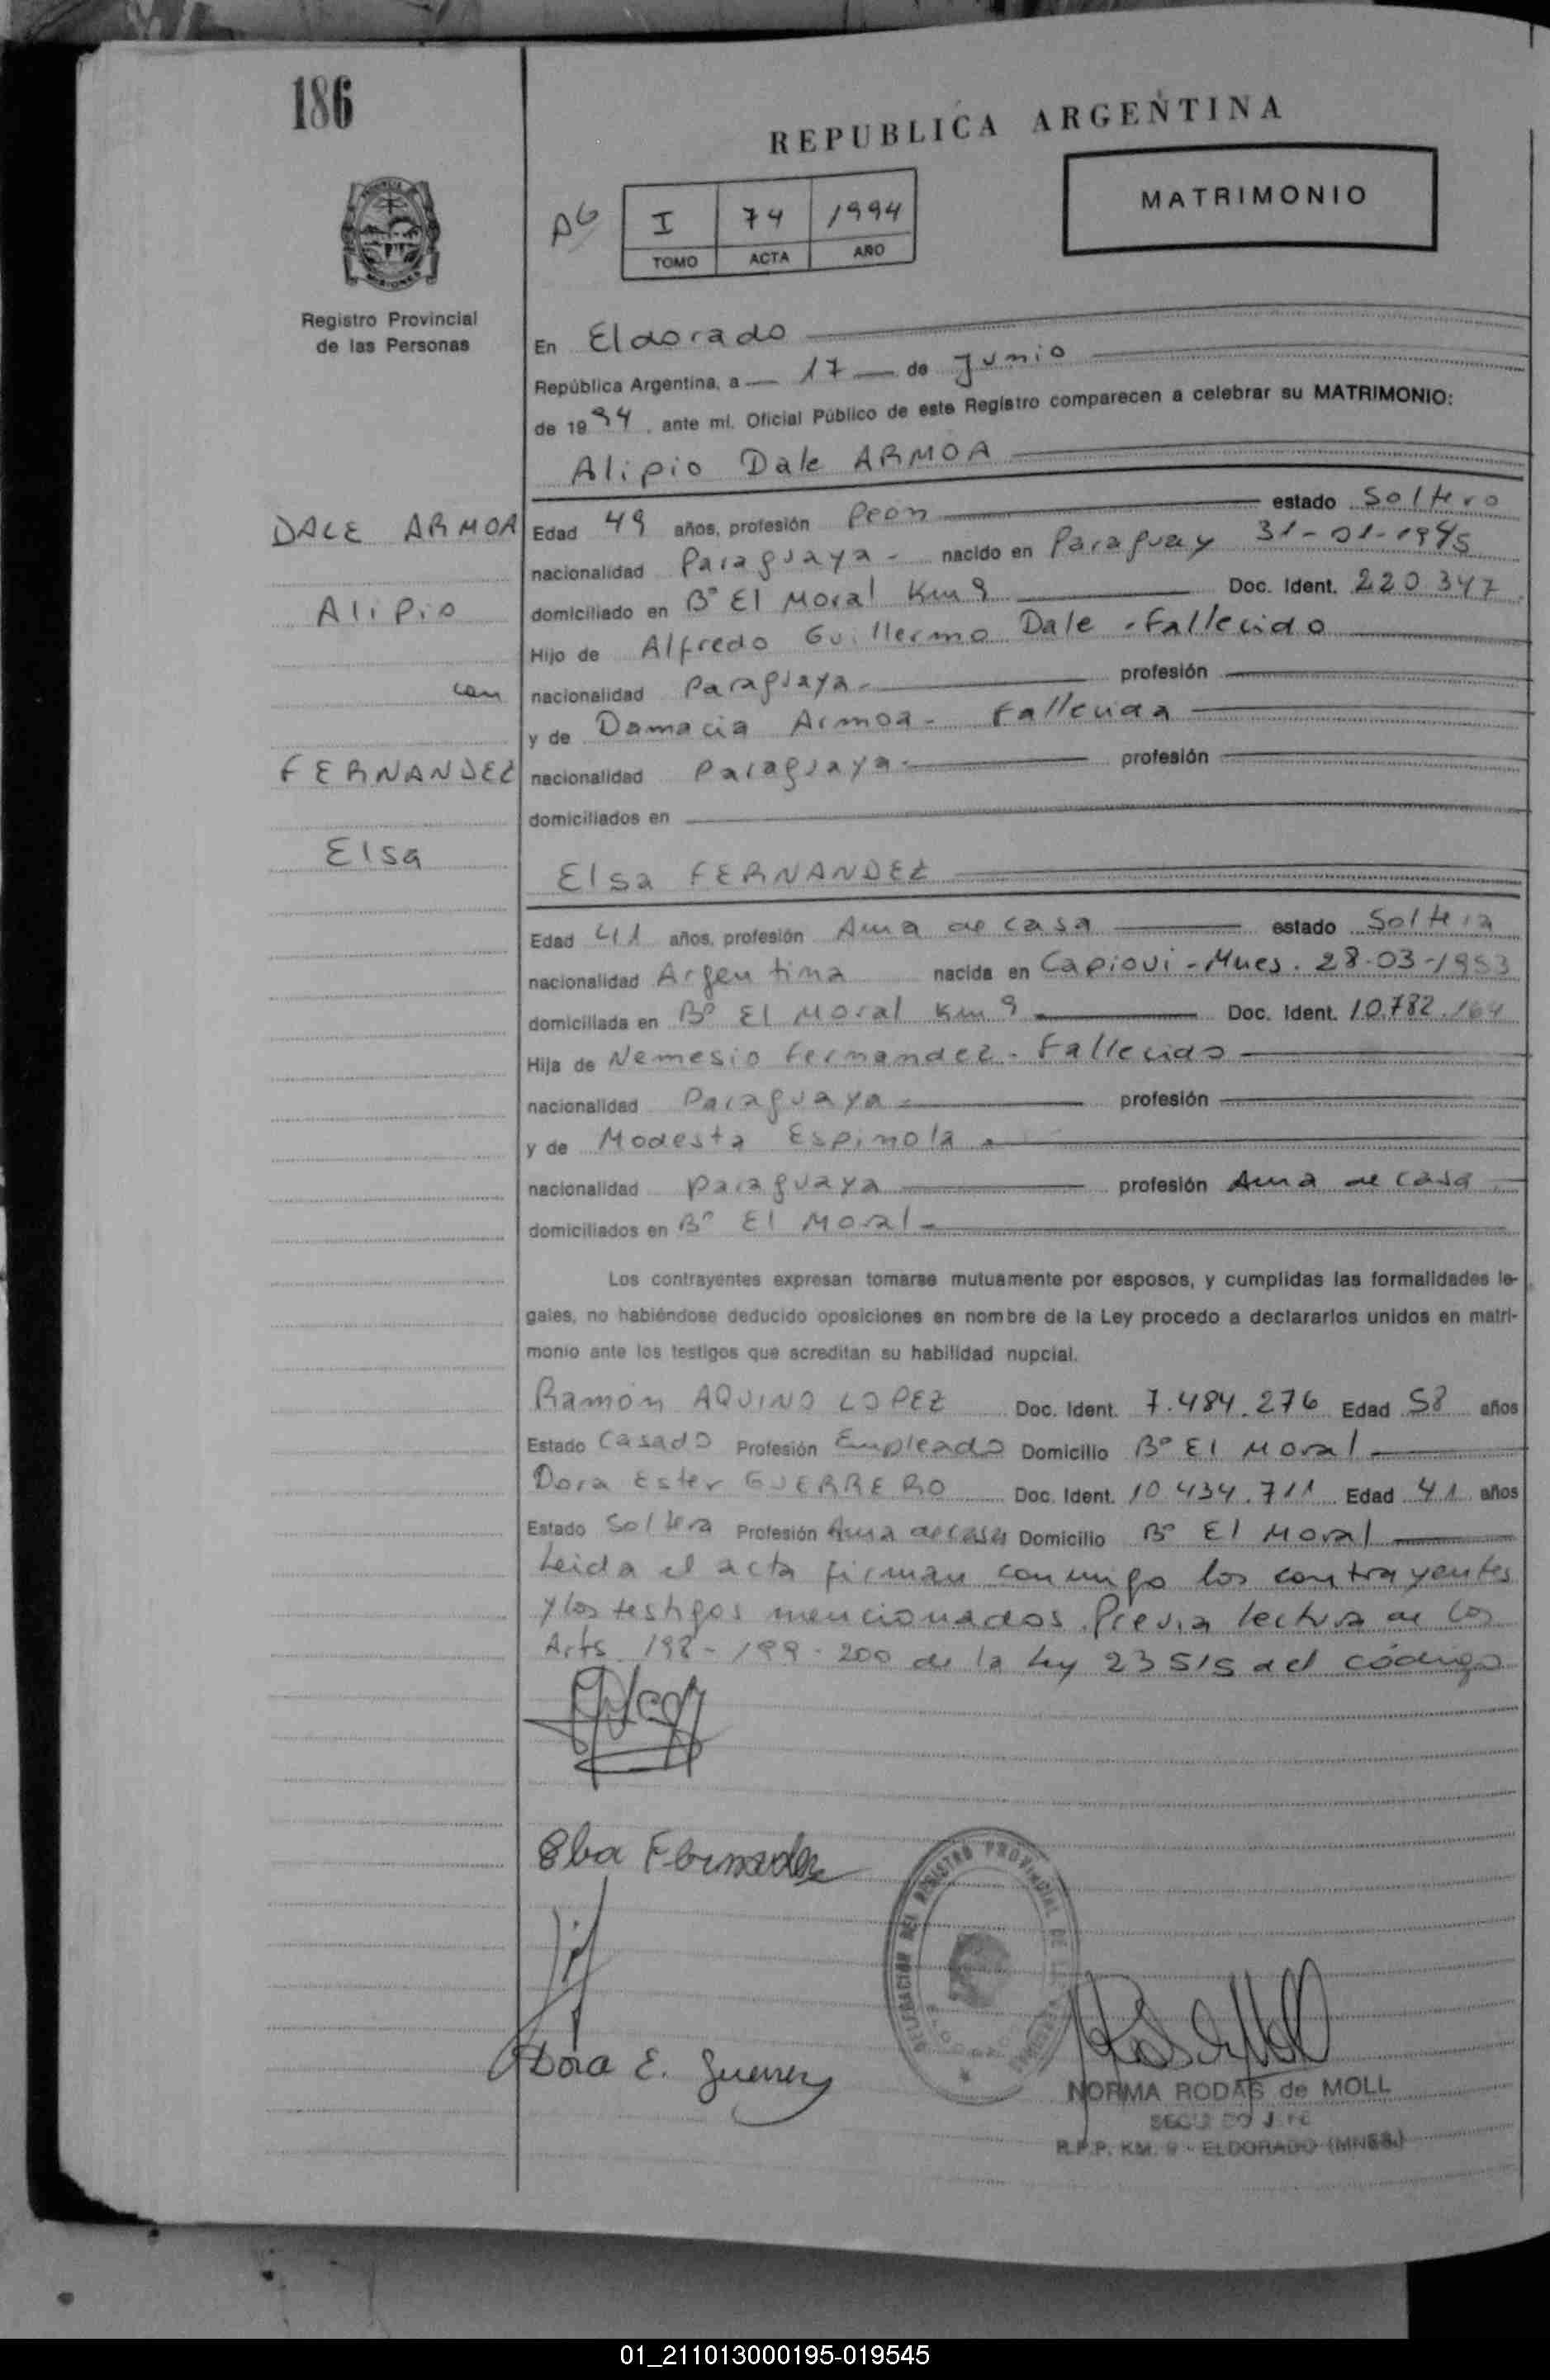 186
REPUBLICA ARGENTINA
MATRIMONIO
AG
I 74 1994
TOMO ACTA AÑO
Registro Provincial
de las Personas
En Eldorado
República Argentina, a 17 de Junio
de 1994, ante mi, Oficial Público de este Registro comparecen a celebrar su MATRIMONIO:
Alipio Dale ARMOA
DALE ARMOA
Alipio
con
FERNANDEZ
Elsa
Edad 49 años, profesión Peon estado Soltero
nacionalidad Paraguaya - nacido en Paraguay 31-01-1945
domiciliado en Bº El Moral Km 9 Doc. Ident. 220.347
Hijo de Alfredo Guillermo Dale - Fallecido
nacionalidad Paraguaya - profesión
y de Damacia Armoa - Fallecida
nacionalidad Paraguaya - profesión
domiciliados en
Elsa FERNANDEZ
Edad 41 años, profesión Ama de casa estado Soltera
nacionalidad Argentina nacida en Capiovi - Mnes. 28-03-1953
domiciliada en Bº El Moral Km 9 Doc. Ident. 10.782.164
Hija de Nemesio Fernandez - Fallecido
nacionalidad Paraguaya - profesión
y de Modesta Espinola -
nacionalidad paraguaya profesión Ama de casa
domiciliados en Bº El Moral -
Los contrayentes expresan tomarse mutuamente por esposos, y cumplidas las formalidades le-
gales, no habiéndose deducido oposiciones en nombre de la Ley procedo a declararlos unidos en matri-
monio ante los testigos que acreditan su habilidad nupcial.
Ramón AQUINO LOPEZ Doc. Ident. 7.484.276 Edad 58 años
Estado Casado Profesión Empleado Domicilio Bº El Moral
Dora Ester GUERRERO Doc. Ident. 10 434.711 Edad 41 años
Estado Soltera Profesión Ama de casa Domicilio Bº El Moral
Leida el acta firman conmigo los contrayentes
y los testigos mencionados. Previa lectura de los
Arts 198 - 199 - 200 de la Ley 23515 del código
Elsa Fernandez
Dora E. Guerrero
DELEGACION DEL REGISTRO PROVINCIAL DE LAS
NORMA RODAS de MOLL
SEGUNDO JEFE
R.P.P. KM. 9 - ELDORADO (MNES.)
01_211013000195-019545